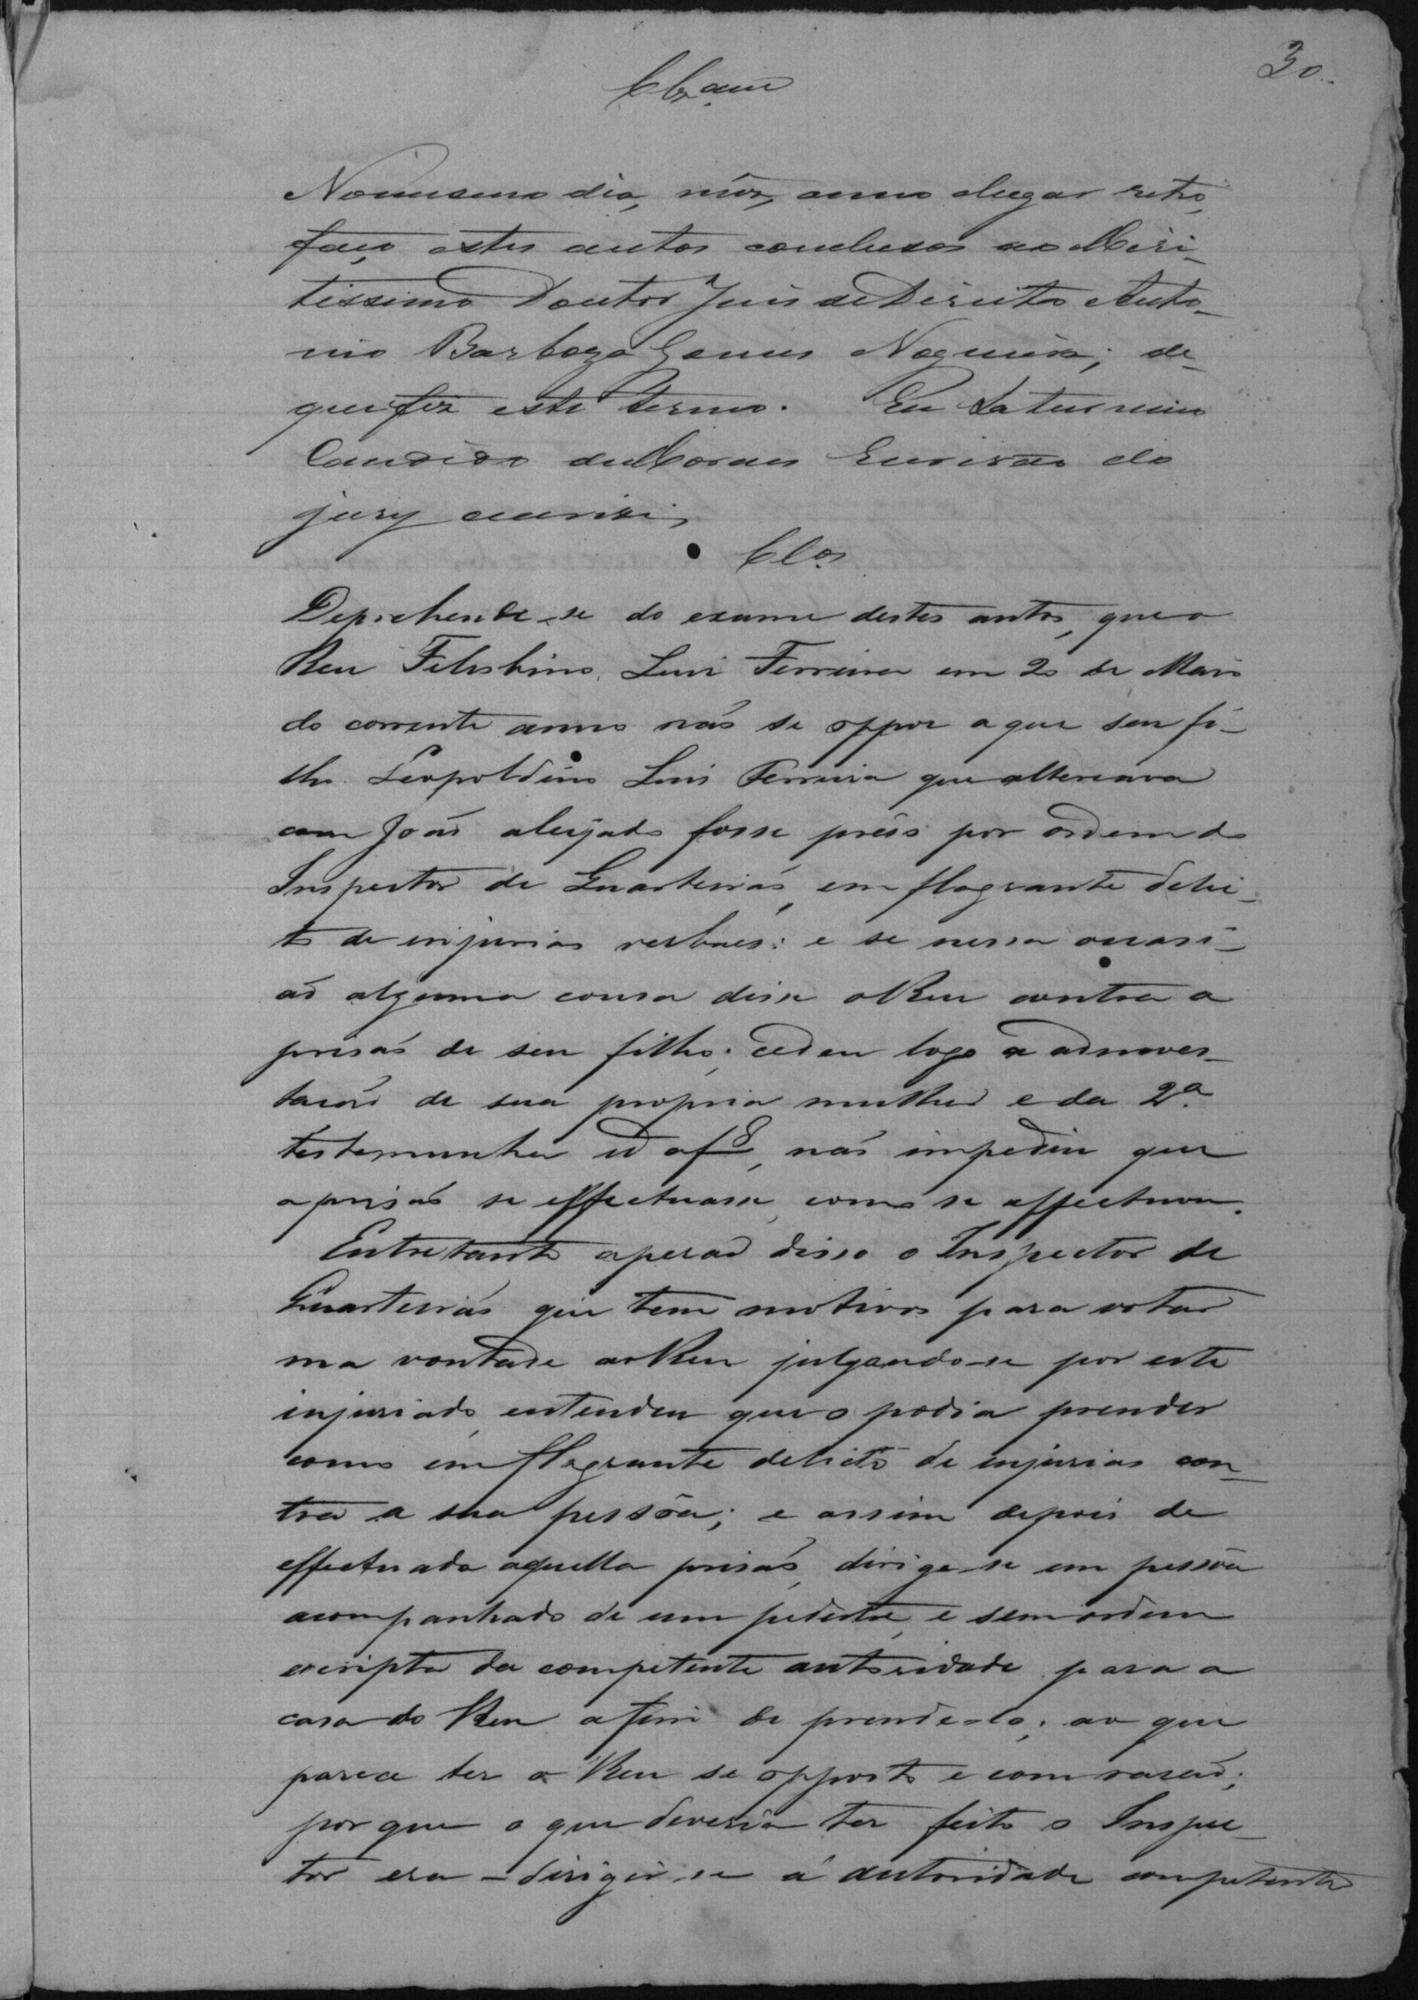 30.
Clzam
No mesmo dia, mez, anno e lugar retro,
faço estes autos concluzos ao Meri-
tissimo Doutor Juis de Direito Anto-
nio Barboza Gomes Nogueira; de
que fiz este termo. Eu Saturnino
Candido de Moraes Escrivão do
jury escrivi,
Clos
Deprehende-se do exame destes autos, que o
Reu Felisbino Luis Ferreira em 20 de Maio
do corrente anno não se oppoz a que seu fi-
lho Leopoldino Luis Ferreira que altercava
com João aleijado fosse prêso por ordem do
Inspector de Quarteirão, em flagrante delic-
to de injurias verbaes: e se nessa occasi-
ão alguma cousa disse o Reu contra a
prisão de seu filho; cedeu logo a admoes-
tacão de sua propria mulher e da 2ª
testemunha, não impediu que
a prisão se effectuasse, como se effectuou.
Entretanto apesar disso o Inspector de
Quarteirão que tem motivos para votar
ma vontade ao Reu julgando-se por este
injuriado, entendeu que o podia prender
como em flagrante delicto de injurias con-
tra a sua pessôa; e assim depois de
effectuada aquella prisão, dirige-se em pessôa
acompanhado de um pedestre, e sem ordem
escripta da competente autoridade para a
casa do Reu afim de prende-lo; ao que
parece ter o Reu se opposto e com rasão;
por que o que deveria ter feito o Inspec-
tor era - dirigir-se á autoridade competente